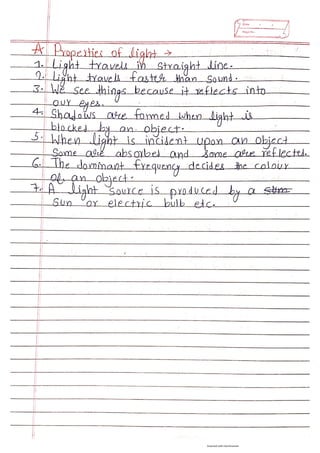 A Properties of light →
1. Light travels in straight line.
2. Light travels faster than sound.
3. We see things because it reflects into
our eyes.
4. Shadows are formed when light is
blocked by an object.
5. When light is incident upon an object
some are absorbed and some are reflected.
6. The dominant frequency decides the colour
of an object.
7. A light source is produced by a
Sun or electric bulb etc.